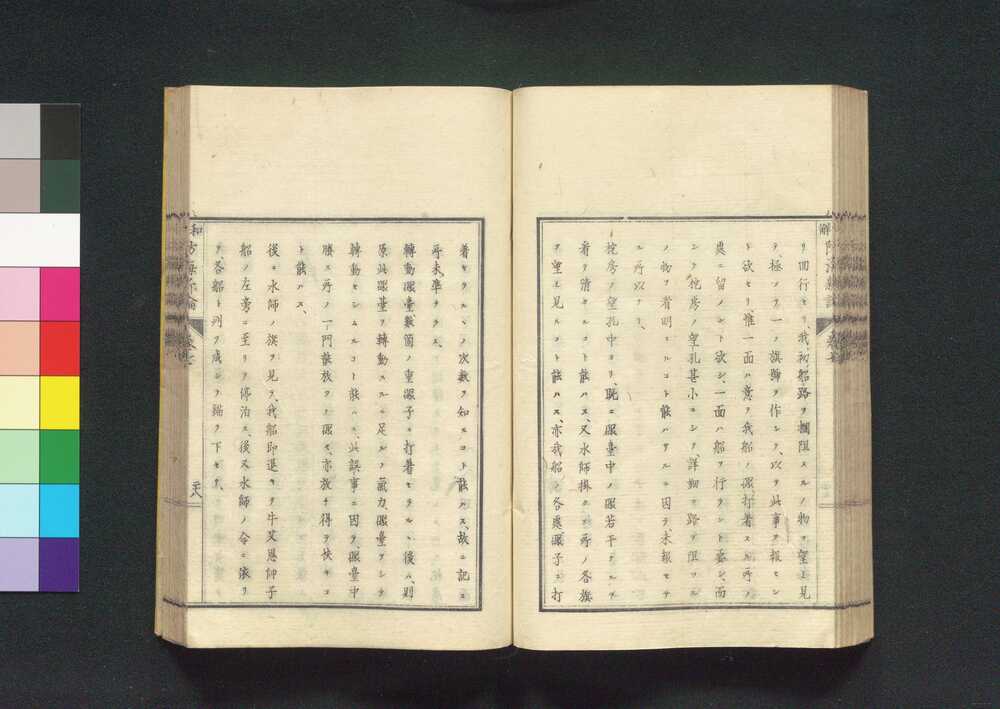 リ回行セリ、我、初船路ヲ攔阻スルノ物ヲ望ミ見
ヲ、極ノテ一ノ旗號ヲ作シ、以テ此事ヲ報セン
ト欲セリ惟一面ハ意ヲ我船ノ礟打着スル所ノ
處ニ留ノント欲シ、一面ハ船ヲ行ラント要シ、而
シテ舵房ノ望孔甚小ニシテ、詳細ニ路ヲ阻ツル
ノ物ヲ看明スルコト能ハサルニ因テ、未報セサ
ル所以ナリ、
舵房ノ望孔中ヨリ、既ニ礟臺中ノ礟若干ナルヲ
看テ清セルコト能ハス、又水師掛ルル所ノ各旗
ヲ望ミ見ルコト能ハス、亦我船ノ各處礟子ニ打
着セラルヽノ次數ヲ知ルコト能ハス、故ニ記ス
所未準ナラス、
轉動礟臺數箇ノ重礟子ニ打着セラルヽ後ハ、則
原此礟臺ヲ轉動スルニ足ルノ氣力、礟臺ヲシテ
轉動セシムルコト能ハス、此誤事ニ因テ、礟臺中
賸ス所ノ一門敢放ツノ礟モ、亦放チ得テ快キコ
ト能ハス、
後ニ水師ノ旗ヲ見テ、我船即退キテ牛艾恩仰子
船ノ左旁ニ至リ停泊ス後又水師ノ令ニ依リ
テ、各船ト列ヲ成シテ錨ヲ下セリ、